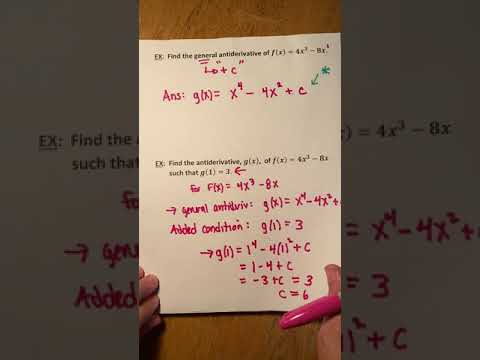 EX: Find the general antiderivative of f(x) = 4x³ − 8x.
"+ c"
Ans: g(x) = x⁴ − 4x² + c
*
EX: Find the antiderivative, g(x), of f(x) = 4x³ − 8x
such that g(1) = 3.
for F(x) = 4x³ − 8x
→ general antideriv: g(x) = x⁴ − 4x² +
Added condition: g(1) = 3
→ g(1) = 1⁴ − 4(1)² + C
= 1 − 4 + C
= −3 + C = 3
C = 6
EX: Find
such
) = 4x³ − 8x
→ general
Added
− 4x² +
= 3
)² + C